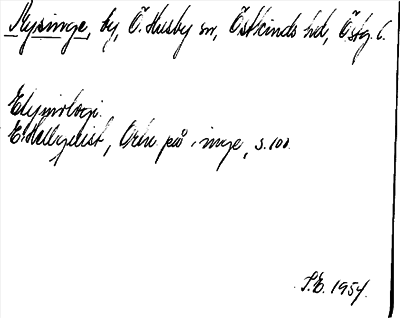 Mysinge, by, Ö. Husby sn, Östkinds hd, Östg. l.
Etymologi.
E. Hellquist, Ortn. på -inge, s. 100.
S.E. 1954.